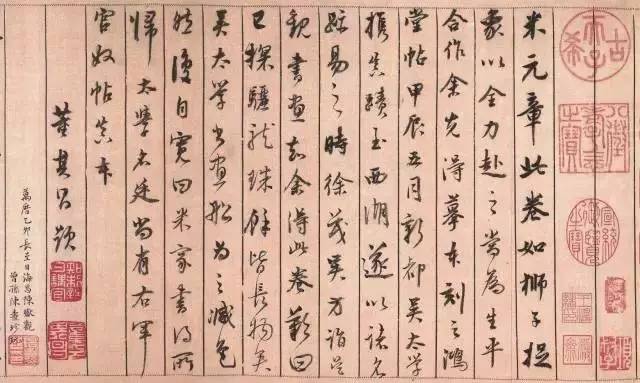 古希天子
八徵耄念之寶
米元章此卷如獅子捉
象以全力赴之當為生平
合作余先得摹本刻之鴻
堂帖甲辰五月新都吳太學
攜真蹟至西湖遂以諸名
跡易之時徐茂吳方詣吳
觀書畫知余得此卷歎曰
已探驪龍珠餘皆長物矣
吳太學書畫船為之減色
然後自寬曰米家書得所
歸太學名廷尚有右軍
官奴帖真本
董其昌題
萬曆乙卯長至日海昌陳瓛觀
曾孫陳珍